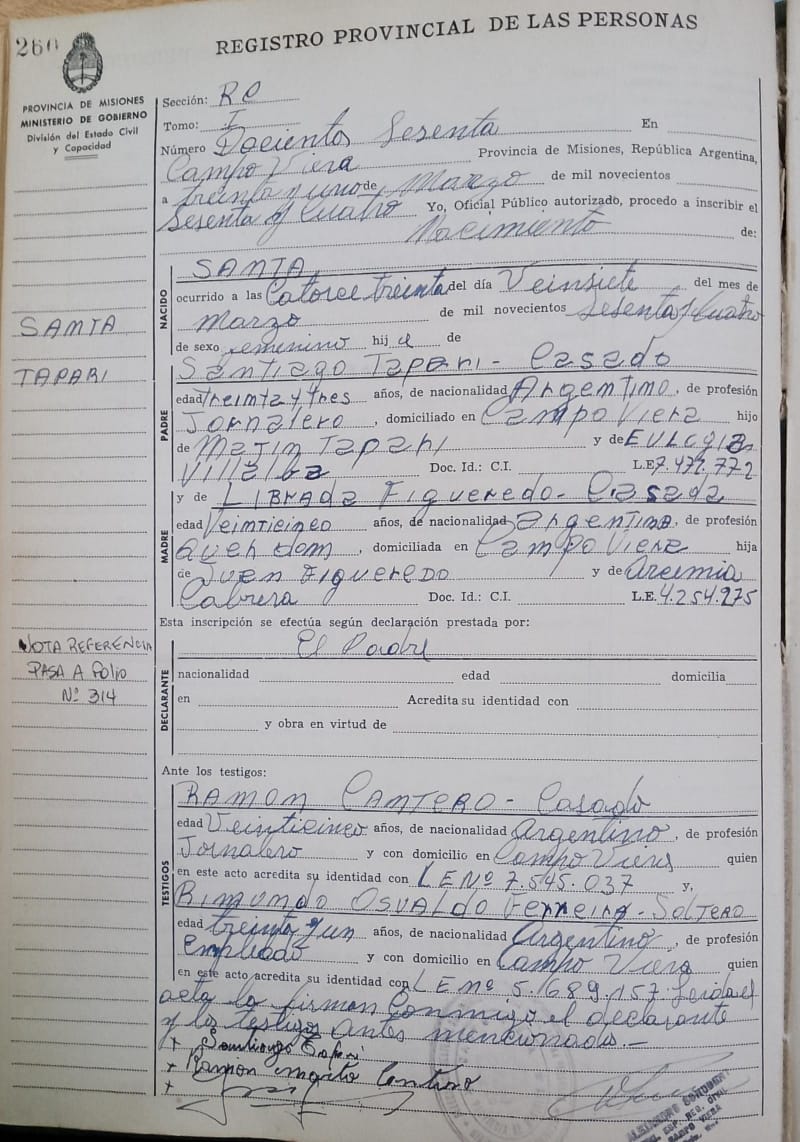 260
REGISTRO PROVINCIAL DE LAS PERSONAS
PROVINCIA DE MISIONES
MINISTERIO DE GOBIERNO
División del Estado Civil
y Capacidad
SANTA
TAPARI
NOTA REFERENCIA
PASA A Folio
Nº 314
Sección: RO
Tomo: I
Número Docientos Sesenta En
Campo Viera Provincia de Misiones, República Argentina,
a treinta y uno de Marzo de mil novecientos
Sesenta y Cuatro Yo, Oficial Público autorizado, procedo a inscribir el
Nacimiento de:
NACIDO
SANTA
ocurrido a las Catorce treinta del día Veinsiete del mes de
Marzo de mil novecientos Sesenta y Cuatro
de sexo femenino hij a de
PADRE
Santiago Tapari - Casado
edad treinta y tres años, de nacionalidad Argentino, de profesión
Jornalero, domiciliado en Campo Viera hijo
de Matin Tapari y de Eulogia
Villalba Doc. Id.: C.I. L.E. 7.472.772
MADRE
y de Librada Figueredo - Casada
edad Veinticinco años, de nacionalidad Argentina, de profesión
Queh dom, domiciliada en Campo Viera hija
de Juan Figueredo y de Arcemia
Cabrera Doc. Id.: C.I. L.E. 4.254.275
Esta inscripción se efectúa según declaración prestada por:
DECLARANTE
El Padre
nacionalidad edad domicilia
en Acredita su identidad con
y obra en virtud de
Ante los testigos:
TESTIGOS
RAMON CANTERO - Casado
edad Veinticinco años, de nacionalidad Argentino, de profesión
Jornalero y con domicilio en Campo Viera quien
en este acto acredita su identidad con LE Nº 7.545.037 y,
Rimundo Osvaldo Ferreira - Soltero
edad treinta y un años, de nacionalidad Argentino, de profesión
Empleado y con domicilio en Campo Viera quien
en este acto acredita su identidad con LE Nº 5.689.157. Leida el
acta la firman Conmigo el declarante
y los testigos antes mencionados.-
+ Santiago Tapari
+ Ramon
+